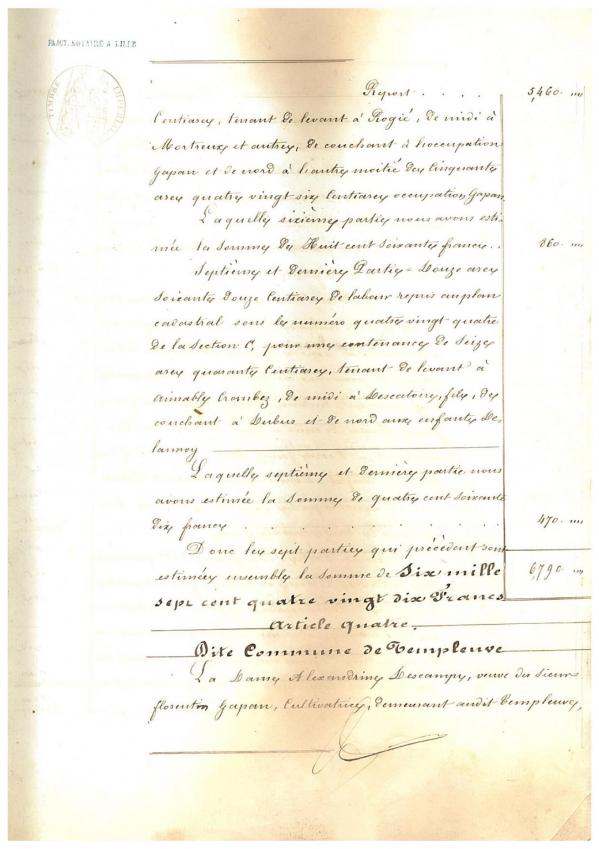 PAJOT, NOTAIRE A LILLE
TIMBRE IMPERIAL
Report . . . . 5,460. "
Centiares, tenant de levant à Rogié, de midi à
Mortreux et autres, de couchant à l'occupation
Gapan et de nord à l'autre moitié des Cinquante
ares quatre vingt six Centiares occupation Gapan.
Laquelle sixième partie nous avons esti-
mée la somme de Huit cent soixante francs . . 860. "
Septième et dernière Partie = Douze ares
Soixante douze Centiares de labour repris au plan
cadastral sous le numéro quatre vingt quatre
de la Section C, pour une contenance de Seize
ares quarante Centiares, tenant de levant à
Aimable Crombez, de midi à Descatoire, fils, de
couchant à Dubus et de nord aux enfants De-
lannoy
Laquelle septième et dernière partie nous
avons estimée la somme de quatre cent soixante
dix francs . . . . . . 470. "
Donc les sept parties qui précèdent sont
estimées ensemble la somme de Six mille 6,790. "
sept cent quatre vingt dix Francs
Article quatre.
Dite Commune de Templeuve
La Dame Alexandrine Descamps, veuve du sieur
florentin Gapan, Cultivatrice, demeurant audit Templeuve,